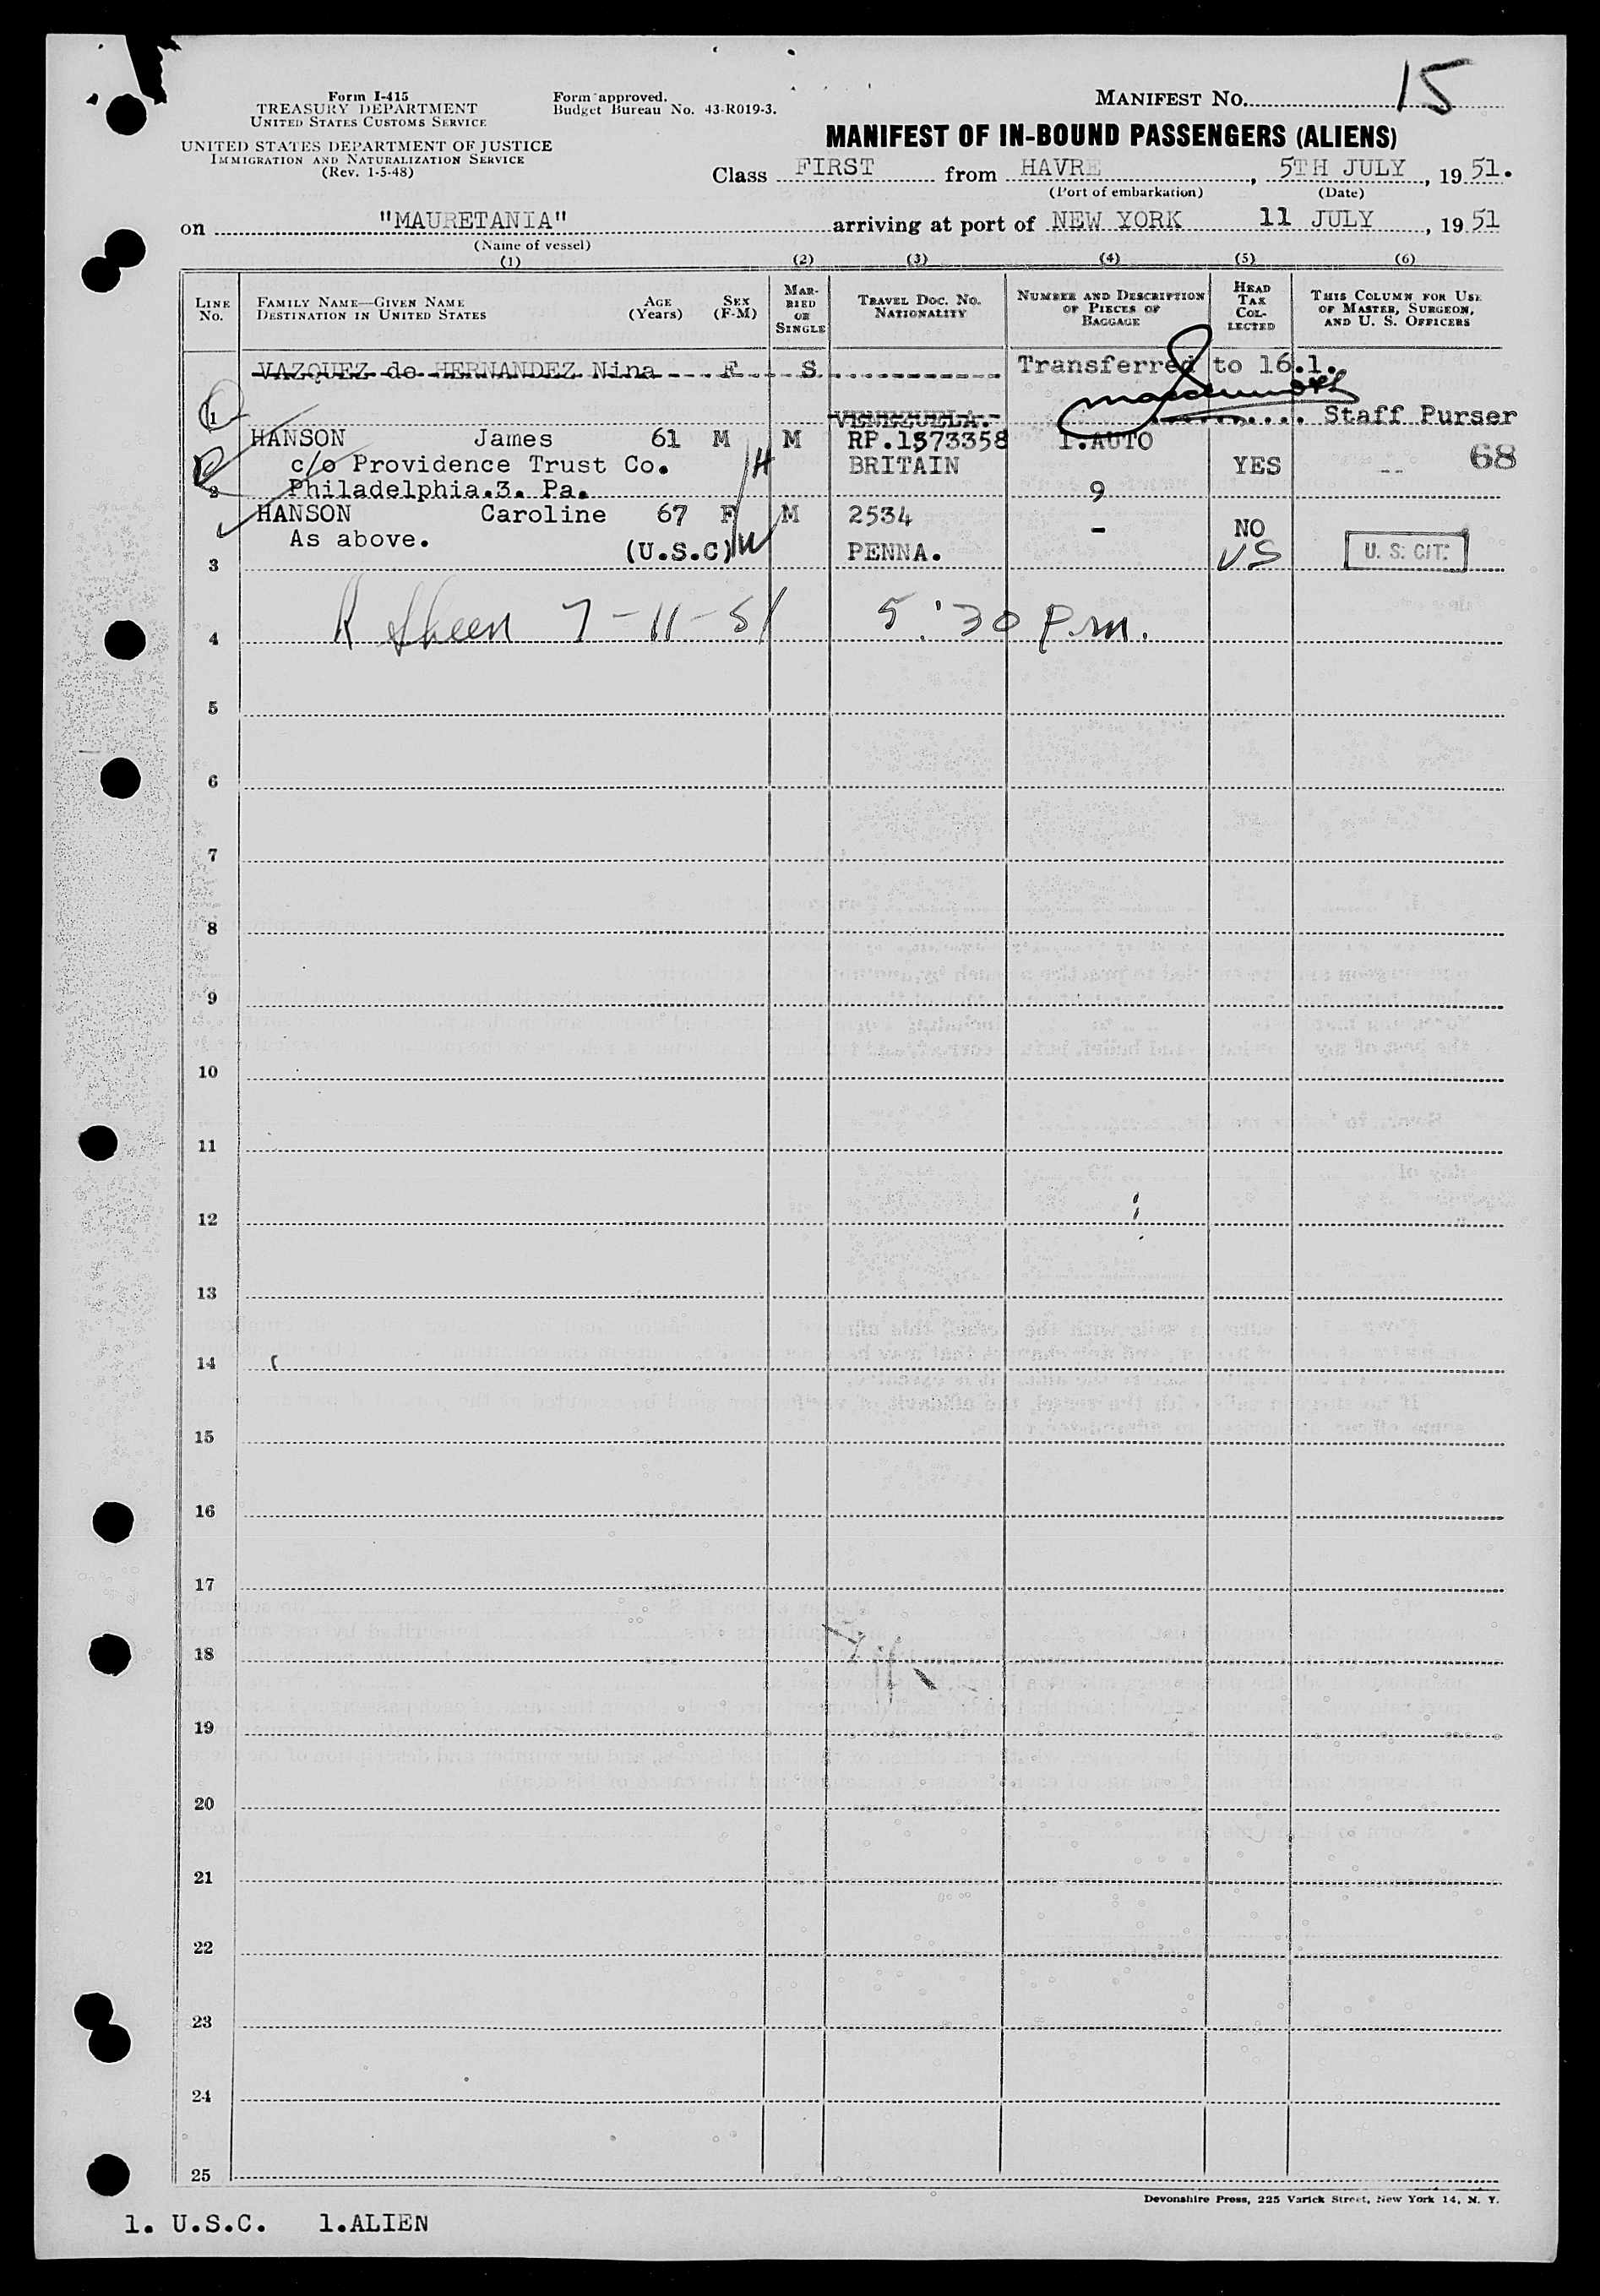 Form I-415
TREASURY DEPARTMENT
UNITED STATES CUSTOMS SERVICE
UNITED STATES DEPARTMENT OF JUSTICE
IMMIGRATION AND NATURALIZATION SERVICE
(Rev. 1-5-48)
Form approved.
Budget Bureau No. 43-R019-3.
MANIFEST NO. 15
MANIFEST OF IN-BOUND PASSENGERS (ALIENS)
Class FIRST from HAVRE, 5TH JULY, 19 51.
(Port of embarkation) (Date)
on "MAURETANIA" arriving at port of NEW YORK 11 JULY, 19 51
(Name of vessel)
(1) (2) (3) (4) (5) (6)
LINE NO. FAMILY NAME—GIVEN NAME DESTINATION IN UNITED STATES AGE (YEARS) SEX (F-M) MARRIED OR SINGLE TRAVEL DOC. NO. NATIONALITY NUMBER AND DESCRIPTION OF PIECES OF BAGGAGE HEAD TAX COLLECTED THIS COLUMN FOR USE OF MASTER, SURGEON, AND U. S. OFFICERS
VAZQUEZ de HERNANDEZ Nina F S Transferred to 16.1.
1 VENEZUELA. Staff Purser
HANSON James 61 M M RP.1573358 1.AUTO
c/o Providence Trust Co. H BRITAIN YES -- 68
2 Philadelphia.3. Pa. 9
HANSON Caroline 67 F M 2534 - NO
As above. (U.S.C) W PENNA. US U. S. CIT.
3
4 7-11-51 5:30 P.m.
5
6
7
8
9
10
11
12
13
14
15
16
17
18
19
20
21
22
23
24
25
Devonshire Press, 225 Varick Street, New York 14, N. Y.
1. U.S.C. 1.ALIEN